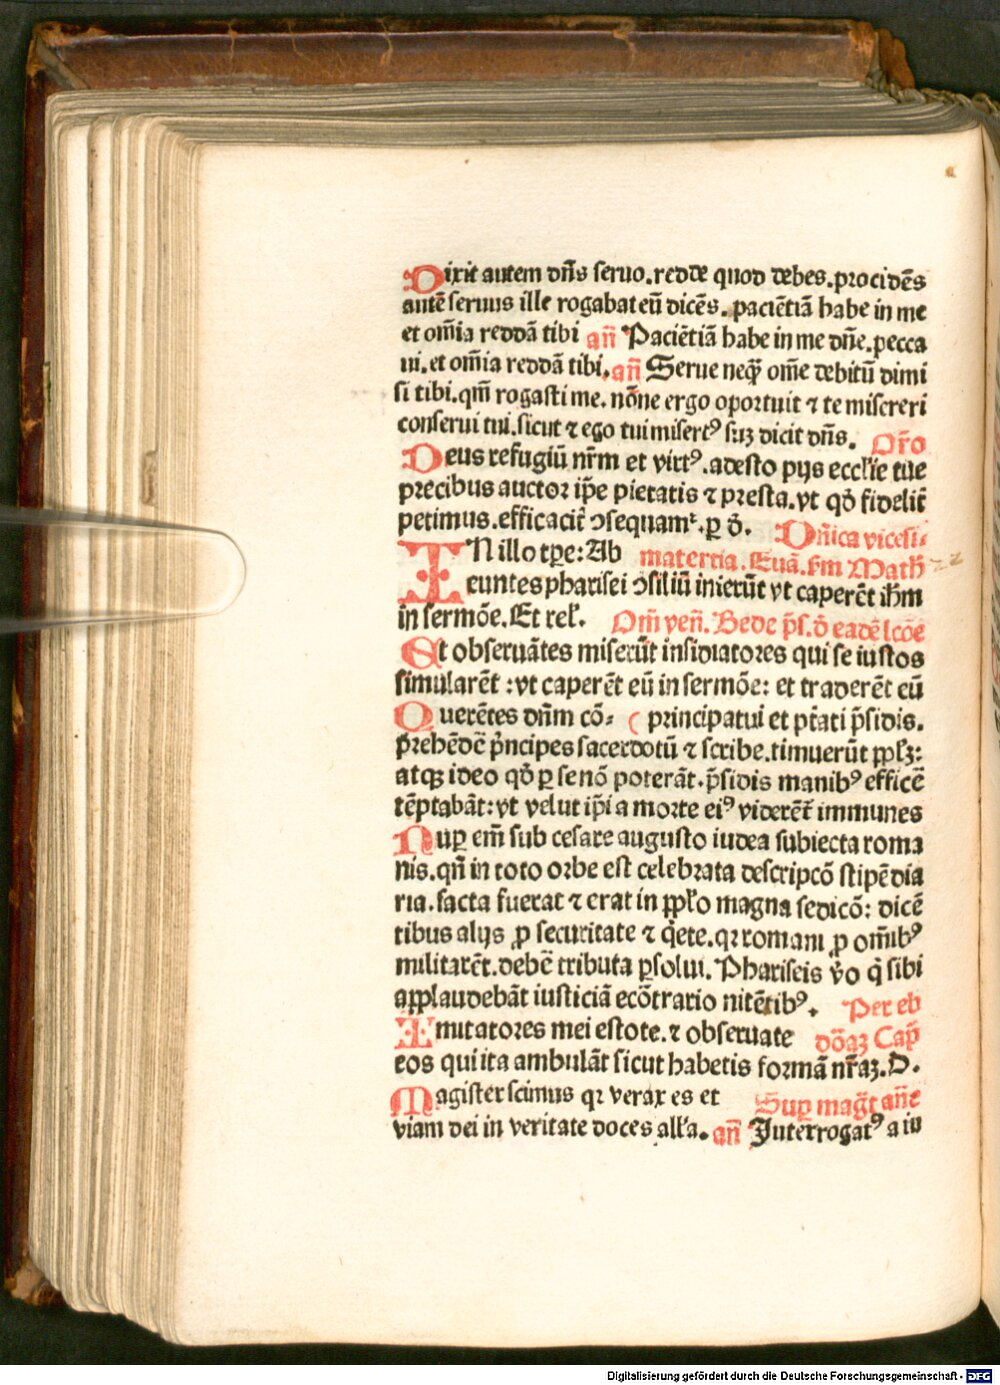 Dixit autem dñs seruo.redde quod debes.procidẽs
autẽ seruus ille rogabat eũ dicẽs.paciẽtiã habe in me
et om̃ia reddã tibi añ Paciẽtiã habe in me dñe.pecca
ui.et om̃ia reddã tibi.añ Serue neq̃ om̃e debitũ dimi
si tibi.qm̃ rogasti me.nõne ergo oportuit ⁊ te misereri
conserui tui.sicut ⁊ ego tui misertꝰ suꝫ dicit dñs. Or̃o
Deus refugiũ nr̃m et virtꝰ.adesto pijs eccl̃ie tue
precibus auctor ip̃e pietatis ⁊ presta.vt qđ fidelit̃
petimus.efficacit̃ ꝯsequamᷣ.ꝑ đ. Dñica vicesi⸗
IN illo tp̃e: Ab materia.Euã.sm̃ Math̃
euntes pharisei ꝯsiliũ inierũt vt caperẽt ih̃m
in sermõe.Et rel̃. Om̃ ven̄.Bede p̃s.đ eadẽ lcõe
Et obseruãtes miserũt insidiatores qui se iustos
simularẽt :vt caperẽt eũ in sermõe: et traderẽt eũ
Querẽtes dñm cõ⸗ ( principatui et pt̃ati p̃sidis.
prehẽdẽ p̃ncipes sacerdotũ ⁊ scribe.timuerũt ppl̃ꝫ:
atqꝫ ideo qđ ꝑ se nõ poterãt.p̃sidis manibꝰ efficẽ
tẽptabãt:vt velut ip̃i a morte eiꝰ viderẽt̃ immunes
Nuꝑ em̃ sub cesare augusto iudea subiecta roma
nis.qñ in toto orbe est celebrata descripcõ stipẽdia
ria.facta fuerat ⁊ erat in ppl̃o magna sedicõ: dicẽ
tibus alijs ꝓ securitate ⁊ q̃ete.qꝛ romani ꝓ om̃ibꝰ
militarẽt.debẽ tributa ꝑsolui.Phariseis v̾o q̃ sibi
applaudebãt iusticiã ecõtrario nitẽtibꝰ. Per eb
Imitatores mei estote.⁊ obseruate dõaꝫ Cap̃
eos qui ita ambulãt sicut habetis formã nr̃aꝫ.D.
Magister scimus qꝛ verax es et Suꝑ mag̃t añe
viam dei in veritate doces all̃a.añ Interrogatꝰ a iu
Digitalisierung gefördert durch die Deutsche Forschungsgemeinschaft - DFG